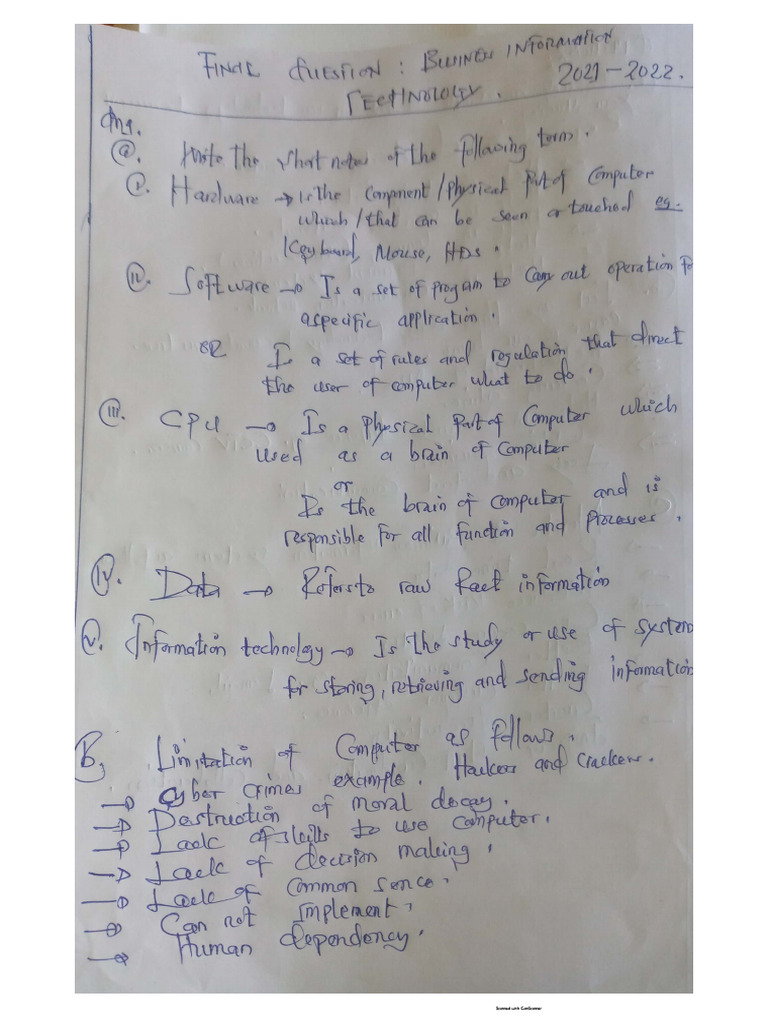 FINAL QUESTION : BUSINESS INFORMATION
TECHNOLOGY. 2021-2022.
Qn1.
(a). Write the short notes of the following term.
(i). Hardware → Is the component/physical part of computer
which/that can be seen or touched eg.
Keyboard, Mouse, HDs.
(ii). Software → Is a set of program to carry out operation for
a specific application.
OR Is a set of rules and regulation that direct
the user of computer what to do.
(iii). CPU → Is a physical part of computer which
used as a brain of computer
or
Is the brain of computer and is
responsible for all function and processes.
(iv). Data → Refers to raw fact information
(v). Information technology → Is the study or use of system
for storing, retrieving and sending information
B, Limitation of computer as follows.
→ Cyber crimes example. Hackers and crackers.
→ Destruction of moral decay.
→ Lack of skills to use computer.
→ Lack of decision making.
→ Lack of common sence.
→ Can not implement.
→ Human dependency.
Scanned with CamScanner